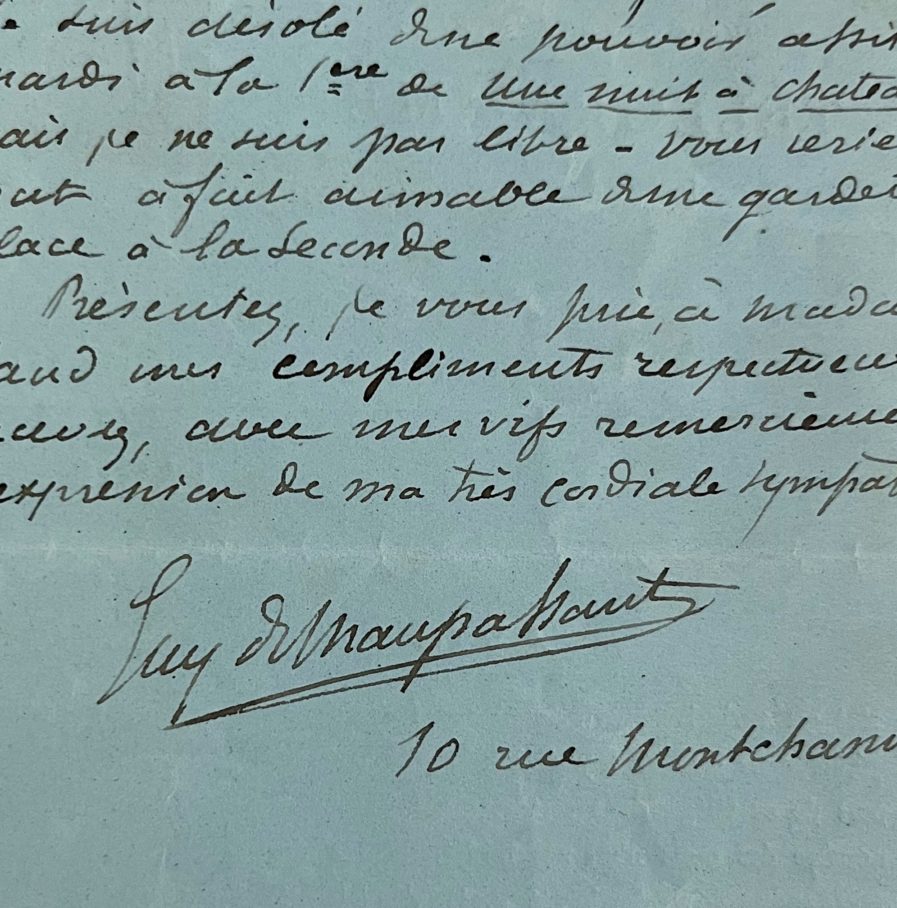 suis désolé de ne pouvoir assis
mardi à la 1ère de une nuit à chatea
ais je ne suis pas libre - Vous serie
out à fait aimable de me garder
lace à la Seconde.
Présentez, je vous prie, à mada
aud mes compliments respectueu
cevez, avec mes vifs remercieme
expression de ma très cordiale sympat
Guy de Maupassant
10 rue Montchanin